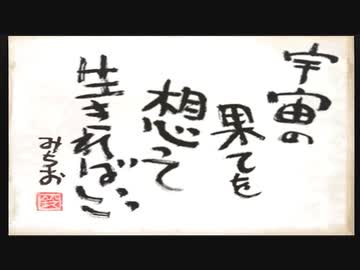 宇宙の
果てを
想って
生きればいい
みちお
鈴